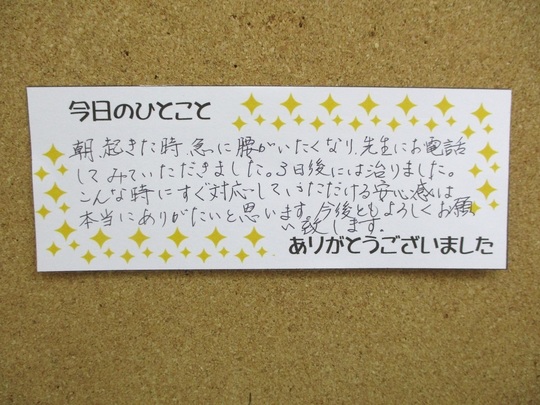 今日のひとこと
朝、起きた時、急に腰がいたくなり、先生にお電話
してみていただきました。3日後には治りました。
こんな時にすぐ対応していただける安心感は
本当にありがたいと思います。今後ともよろしくお願
い致します。
ありがとうございました